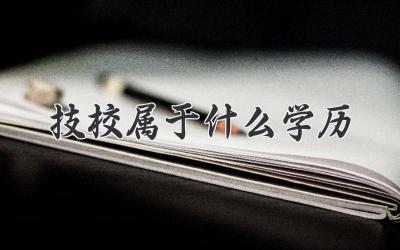 技校属于什么学历